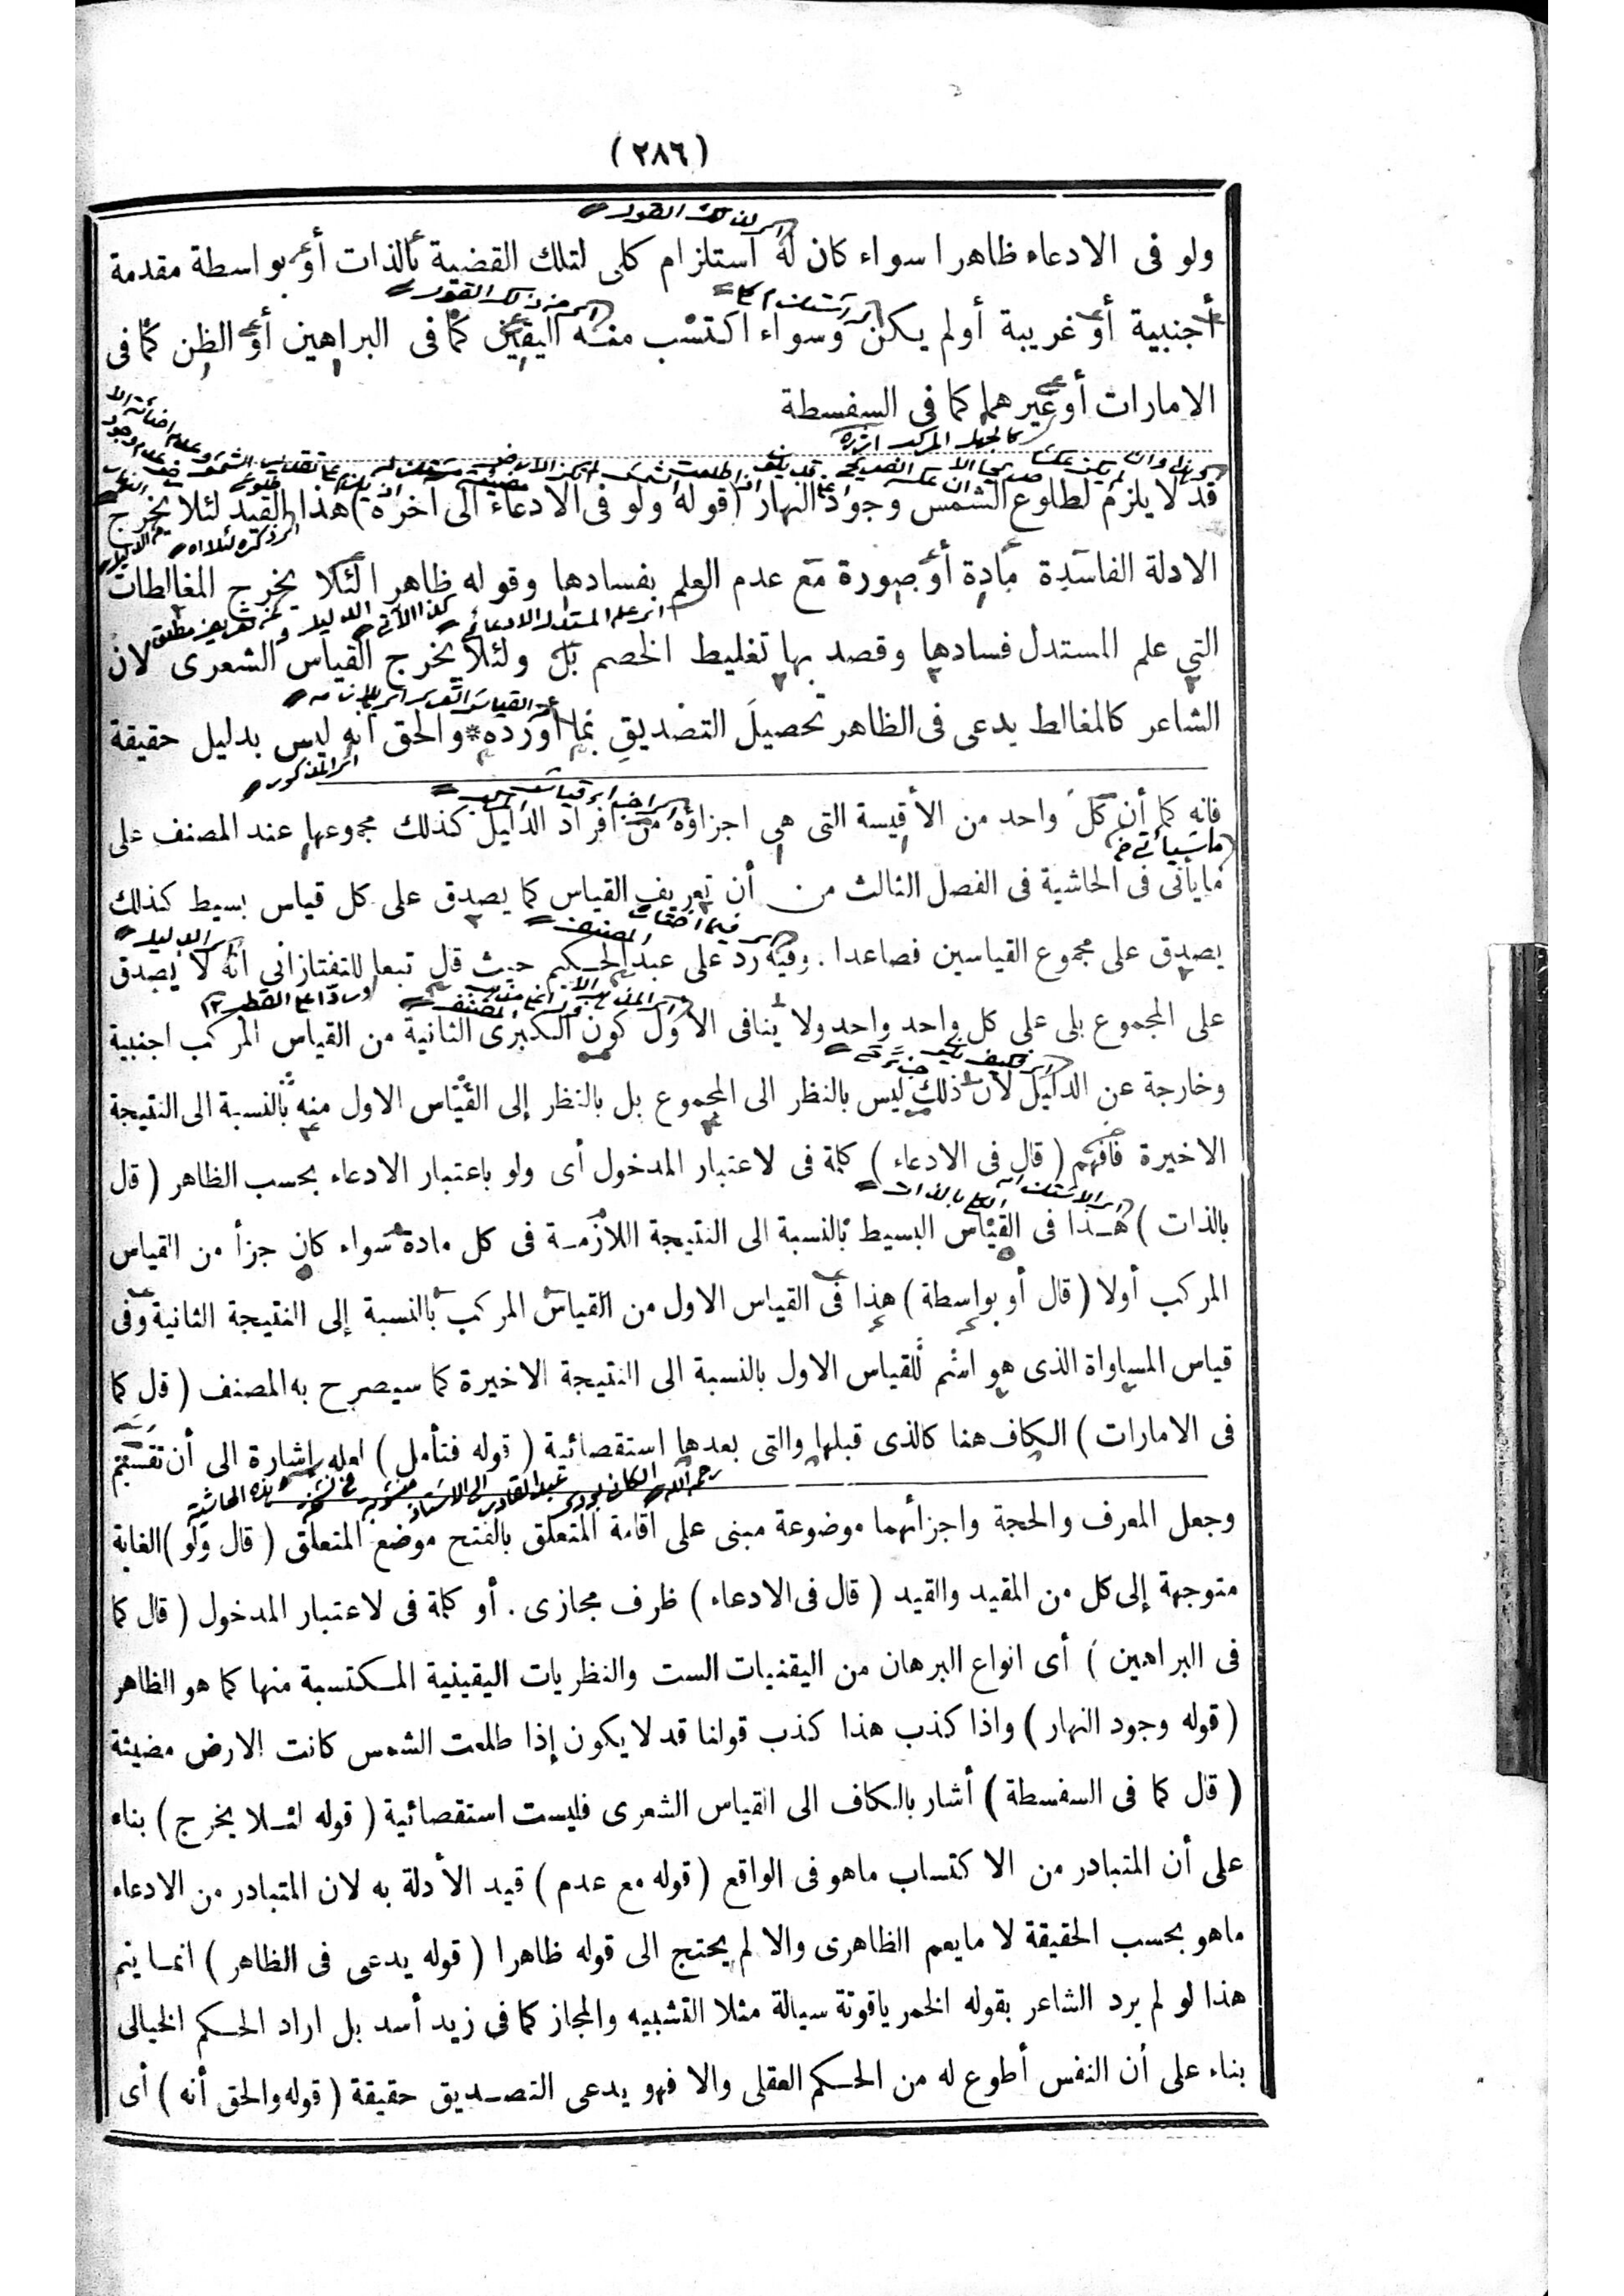 (٢٨٦)
ولو فى الادعاء ظاهرا سواء كان له استلزام كلى لتلك القضية بالذات أو بواسطة مقدمة
أجنبية أو غريبة أولم يكن وسواء اكتسب منه اليقين كما فى البراهين أو الظن كما فى
الامارات أو غيرهما كما فى السفسطة
قد لا يلزم لطلوع الشمس وجود النهار (قوله ولو فى الادعاء الى آخره) هذا القيد لئلا يخرج
الادلة الفاسدة مادة أو صورة مع عدم العلم بفسادها وقوله ظاهرا لئلا يخرج المغالطات
التي علم المستدل فسادها وقصد بها تغليط الخصم بل ولئلا يخرج القياس الشعرى لان
الشاعر كالمغالط يدعى فى الظاهر تحصيل التصديق بما أورده * والحق أنه ليس بدليل حقيقة
فانه كما أن كل واحد من الأقيسة التى هى اجزاؤه من افراد الدليل كذلك مجموعها عند المصنف على
ما يأتى فى الحاشية فى الفصل الثالث من أن تعريف القياس كما يصدق على كل قياس بسيط كذلك
يصدق على مجموع القياسين فصاعدا . وفيه رد على عبد الحكيم حيث قال تبعا للتفتازاني انه لا يصدق
على المجموع بلى على كل واحد واحد ولا ينافى الاول كون الكبرى الثانية من القياس المركب اجنبية
وخارجة عن الدليل لان ذلك ليس بالنظر الى المجموع بل بالنظر إلى القياس الاول منه بالنسبة الى النتيجة
الاخيرة فافهم ( قال فى الادعاء ) كلمة فى لاعتبار المدخول أى ولو باعتبار الادعاء بحسب الظاهر ( قال
بالذات ) هذا فى القياس البسيط بالنسبة الى النتيجة اللازمة فى كل مادة سواء كان جزأ من القياس
المركب أولا ( قال أو بواسطة ) هذا فى القياس الاول من القياس المركب بالنسبة إلى النتيجة الثانية وفى
قياس المساواة الذى هو اسم للقياس الاول بالنسبة الى النتيجة الاخيرة كما سيصرح به المصنف ( قال كما
فى الامارات ) الكاف هنا كالذى قبلها والتى بعدها استقصائية ( قوله فتأمل ) لعله إشارة الى أن تقسيم
وجعل المعرف والحجة واجزائهما موضوعة مبنى على اقامة المتعلق بالفتح موضع المتعلق ( قال ولو ) الغاية
متوجهة إلى كل من المقيد والقيد ( قال فى الادعاء ) ظرف مجازى . أو كلمة فى لاعتبار المدخول ( قال كما
فى البراهين ) أى انواع البرهان من اليقنيات الست والنظريات اليقينية المكتسبة منها كما هو الظاهر
( قوله وجود النهار ) واذا كذب هذا كذب قولنا قد لا يكون إذا طلعت الشمس كانت الارض مضيئة
( قال كما فى السفسطة ) أشار بالكاف الى القياس الشعرى فليست استقصائية ( قوله لئلا يخرج ) بناء
على أن المتبادر من الاكتساب ماهو فى الواقع ( قوله مع عدم ) قيد الأدلة به لان المتبادر من الادعاء
ماهو بحسب الحقيقة لا مايعم الظاهرى والا لم يحتج الى قوله ظاهرا ( قوله يدعى فى الظاهر ) انما يتم
هذا لو لم يرد الشاعر بقوله الخمر ياقوتة سيالة مثلا التشبيه والمجاز كما فى زيد أسد بل اراد الحكم الخيالى
بناء على أن النفس أطوع له من الحكم العقلى والا فهو يدعى التصديق حقيقة ( قوله والحق أنه ) أى